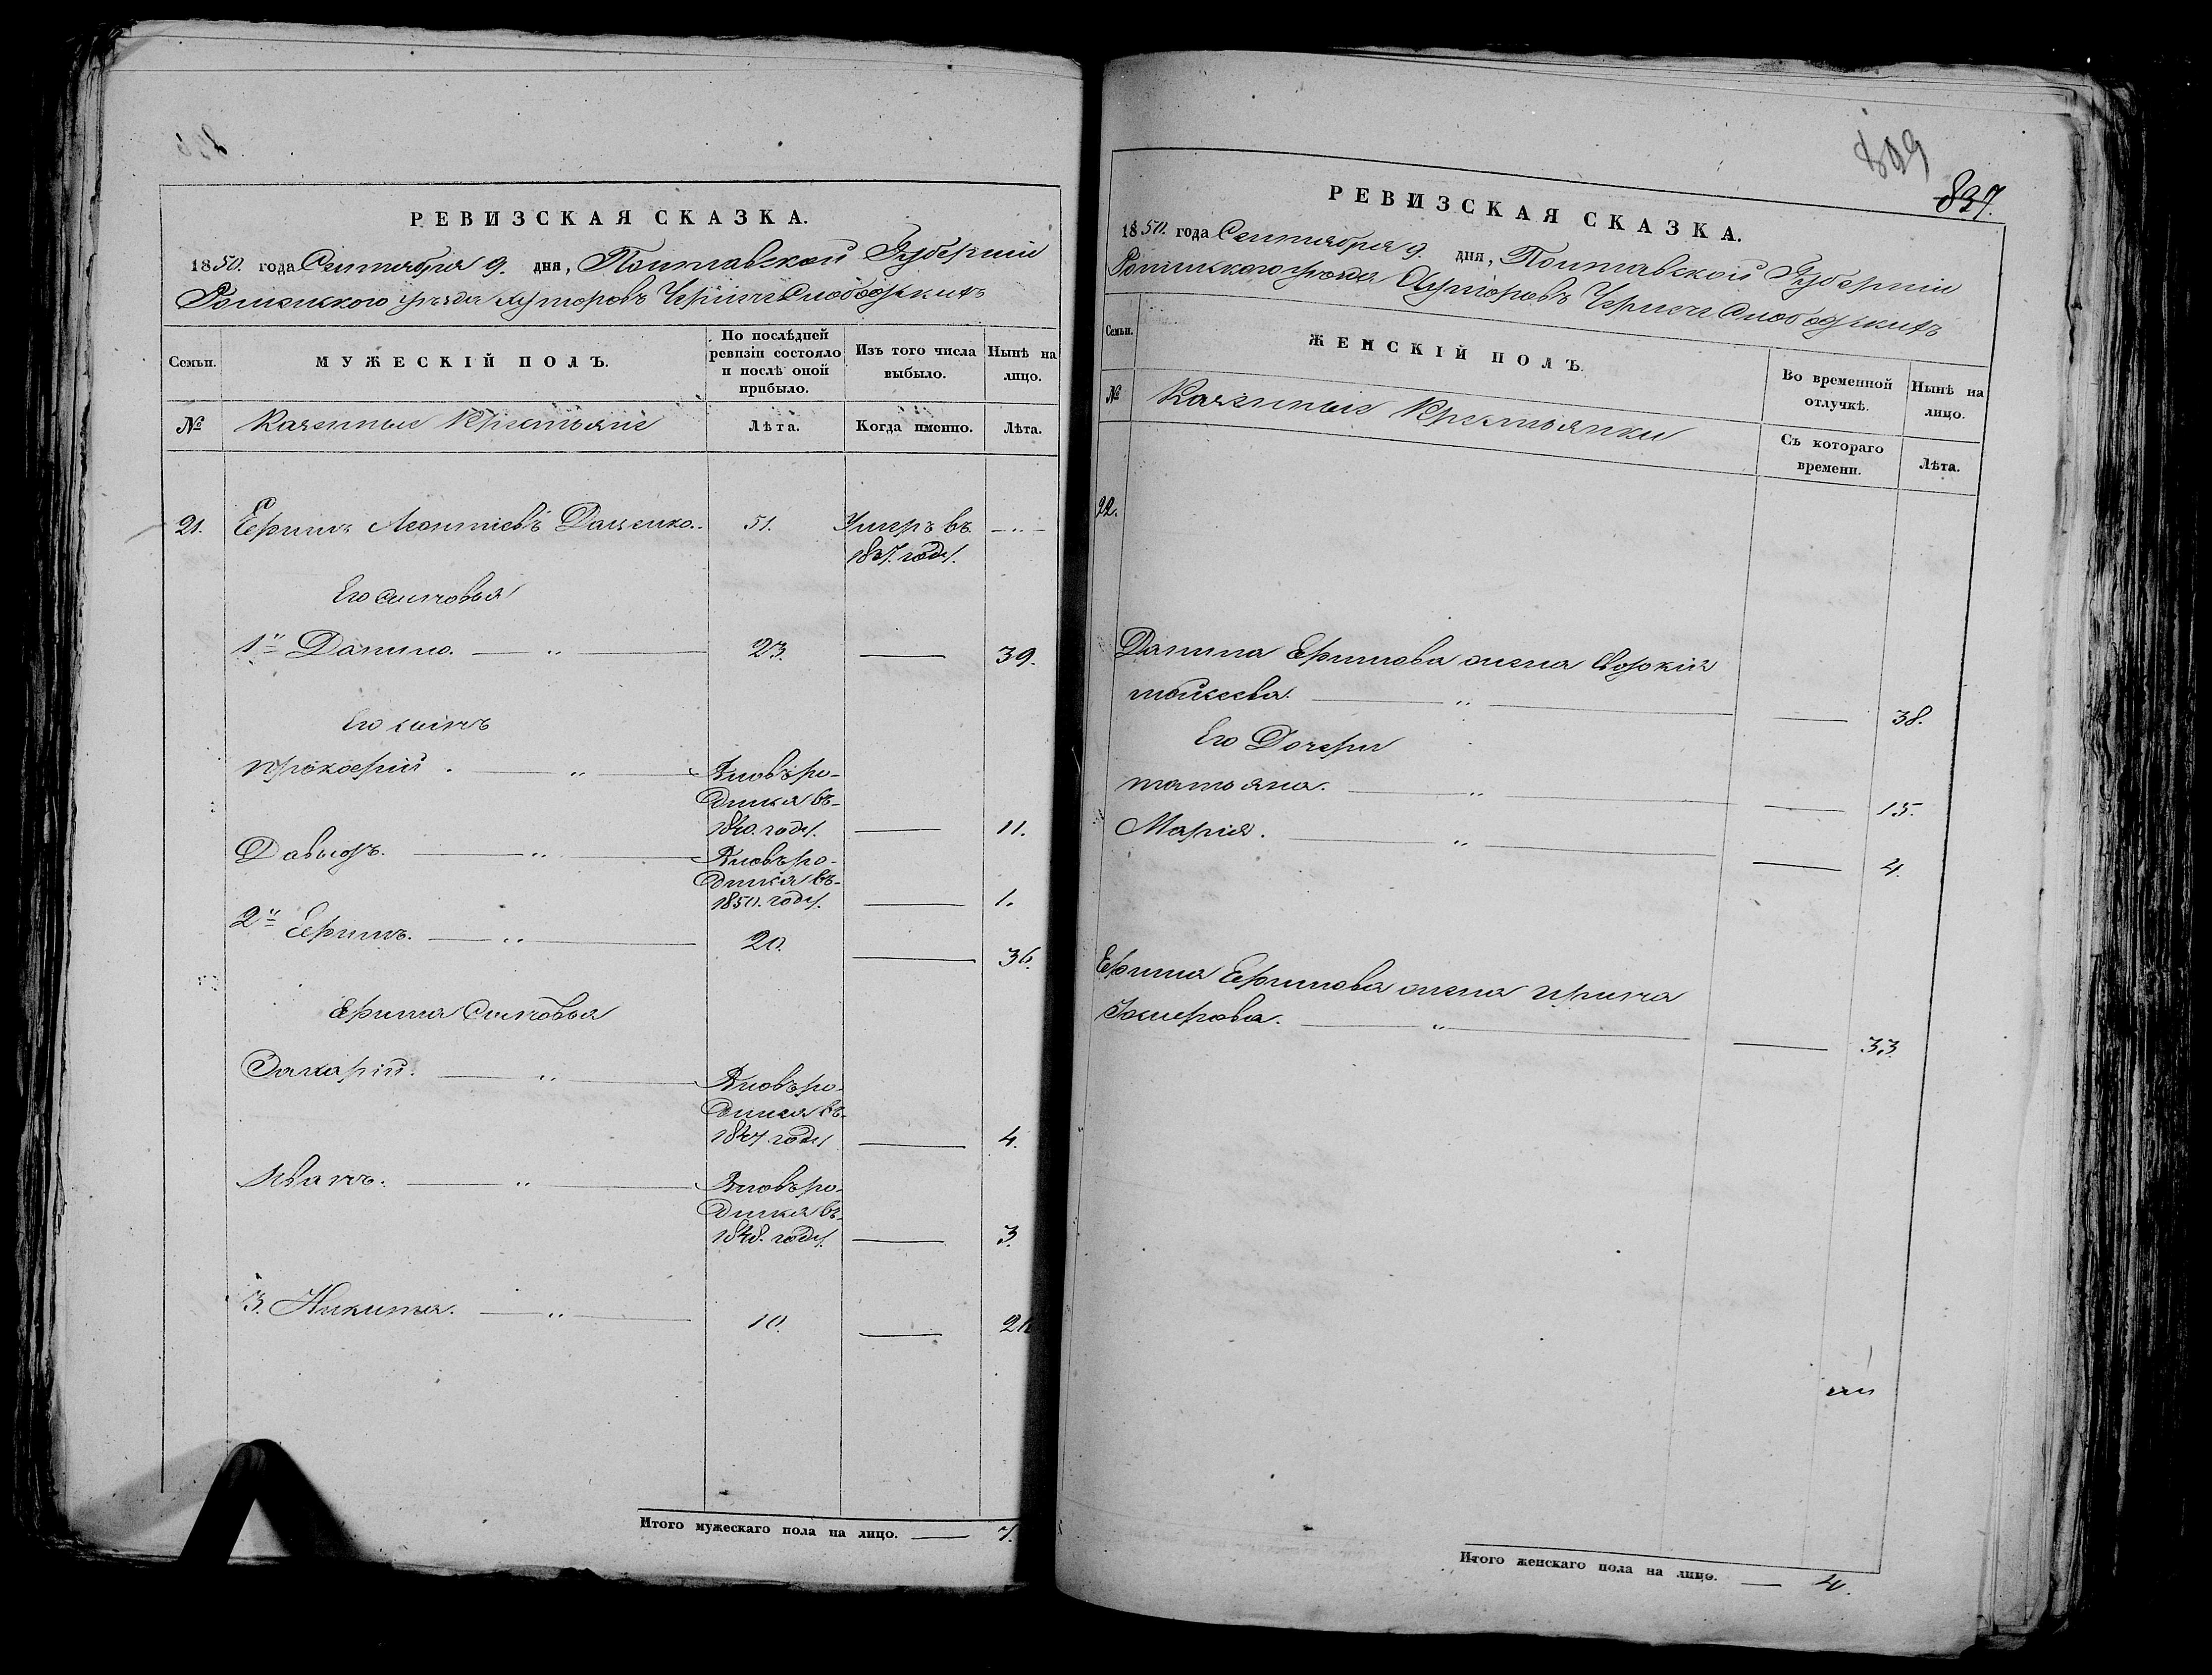 РЕВИЗСКАЯ СКАЗКА.
1850. года Сентября 9. дня, Полтавской Губерніи
Роменскаго уѣзда Хуторовъ Черчече Слободскихъ
Семьи.
МУЖЕСКІЙ ПОЛЪ.
По послѣдней ревизіи состояло и послѣ оной прибыло.
Изъ того числа выбыло.
Нынѣ на лицо.
№
Казенные Крестьяне
Лѣта.
Когда именно.
Лѣта.
21. Ефимъ Леонтіевъ Даценко. 51. Умеръ въ
1837. году.
Его сыновья
1й Данило. 23. 39.
Его сынъ
Прокофій. Вновь ро-
дился въ
1840. году. 11.
Давыдъ. Вновь ро-
дился въ
1850. году. 1.
2й Ефимъ. 20. 36.
Ефима Сыновья
Захарій. Вновь ро-
дился въ
1847 году 4.
Иванъ. Вновь ро-
дился въ
1848. году. 3.
3. Никита. 10.
Итого мужескаго пола на лицо. 7.
809
837.
РЕВИЗСКАЯ СКАЗКА.
1850. года Сентября 9. дня, Полтавской Губерніи
Роменскаго уѣзда Хуторовъ Слободскихъ
Семьи.
ЖЕНСКІЙ ПОЛЪ.
Во временной отлучкѣ.
Нынѣ на лицо.
№
Казенные Крестьянки
Съ котораго времени.
Лѣта.
22.
Данила Ефимова жена Евдокія
Мойсеева. 38.
Его Дочери
татьяна. 15.
Марія. 4.
Ефима Ефимова жена Ирина
33
Итого женскаго пола на лицо. 4.